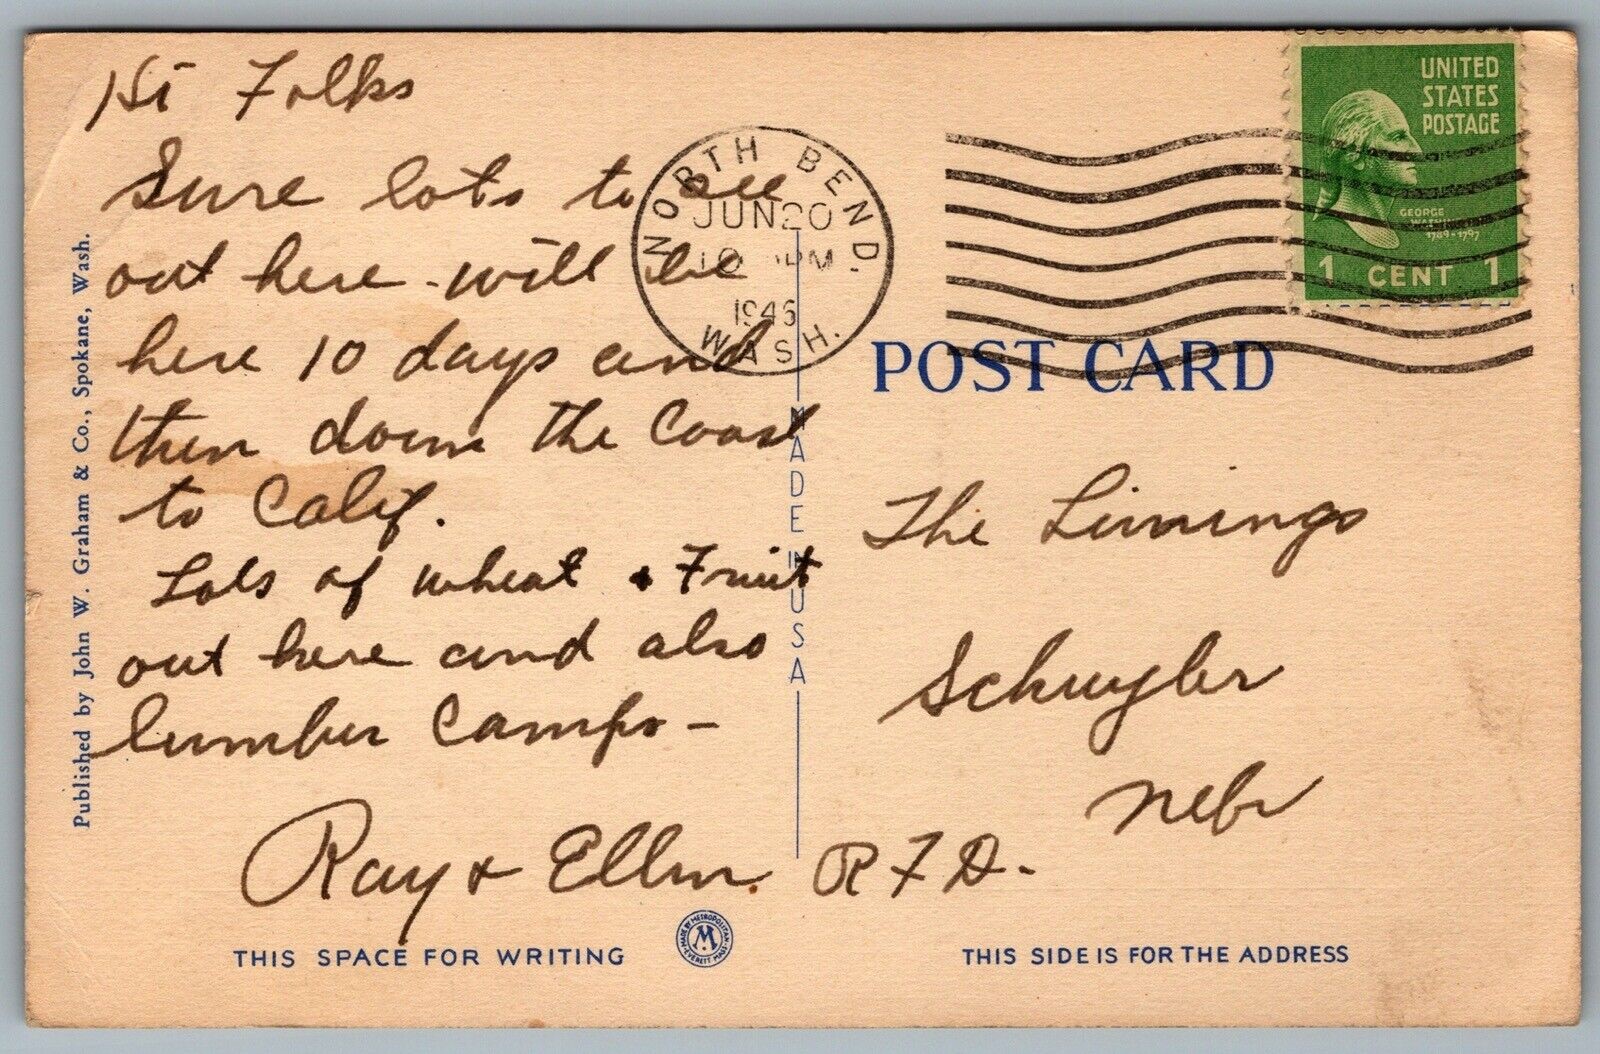 Hi Folks
Sure lots to see
out here - will be
here 10 days and
then down the Coast
to Calif.
Lots of wheat & Fruit
out here and also
lumber Camps -
Ray & Ellen.
Published by John W. Graham & Co., Spokane, Wash.
THIS SPACE FOR WRITING
MADE BY METROPOLITAN
M
EVERETT MASS
MADE IN USA
NORTH BEND.
JUN 20
PM
1946
WASH.
UNITED
STATES
POSTAGE
GEORGE
WASHINGTON
1789-1797
1 CENT 1
POST CARD
The
Schuyler
Nebr
R F D.
THIS SIDE IS FOR THE ADDRESS